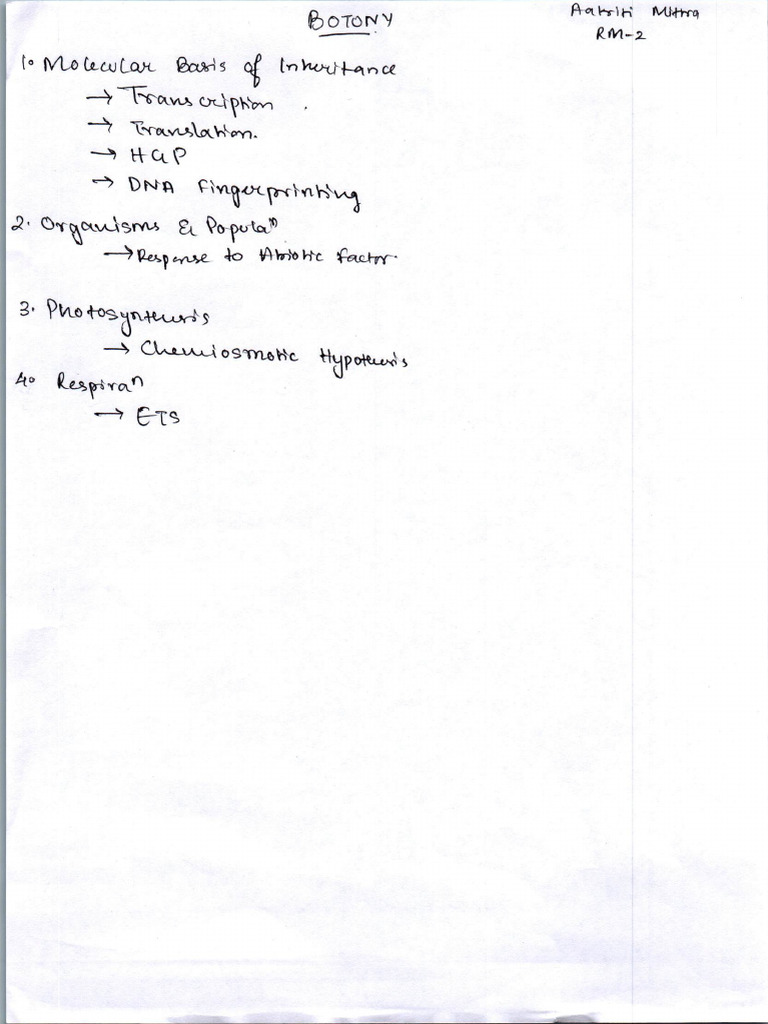 BOTONY
Aakriti Mitra
RM-2
1. Molecular Basis of Inheritance
→ Transcription.
→ Translation.
→ HGP
→ DNA Fingerprinting
2. Organisms & Populaⁿ
→ Response to Abiotic factor.
3. Photosynthesis
→ Chemiosmotic Hypothesis
4. Respiraⁿ
→ ETS